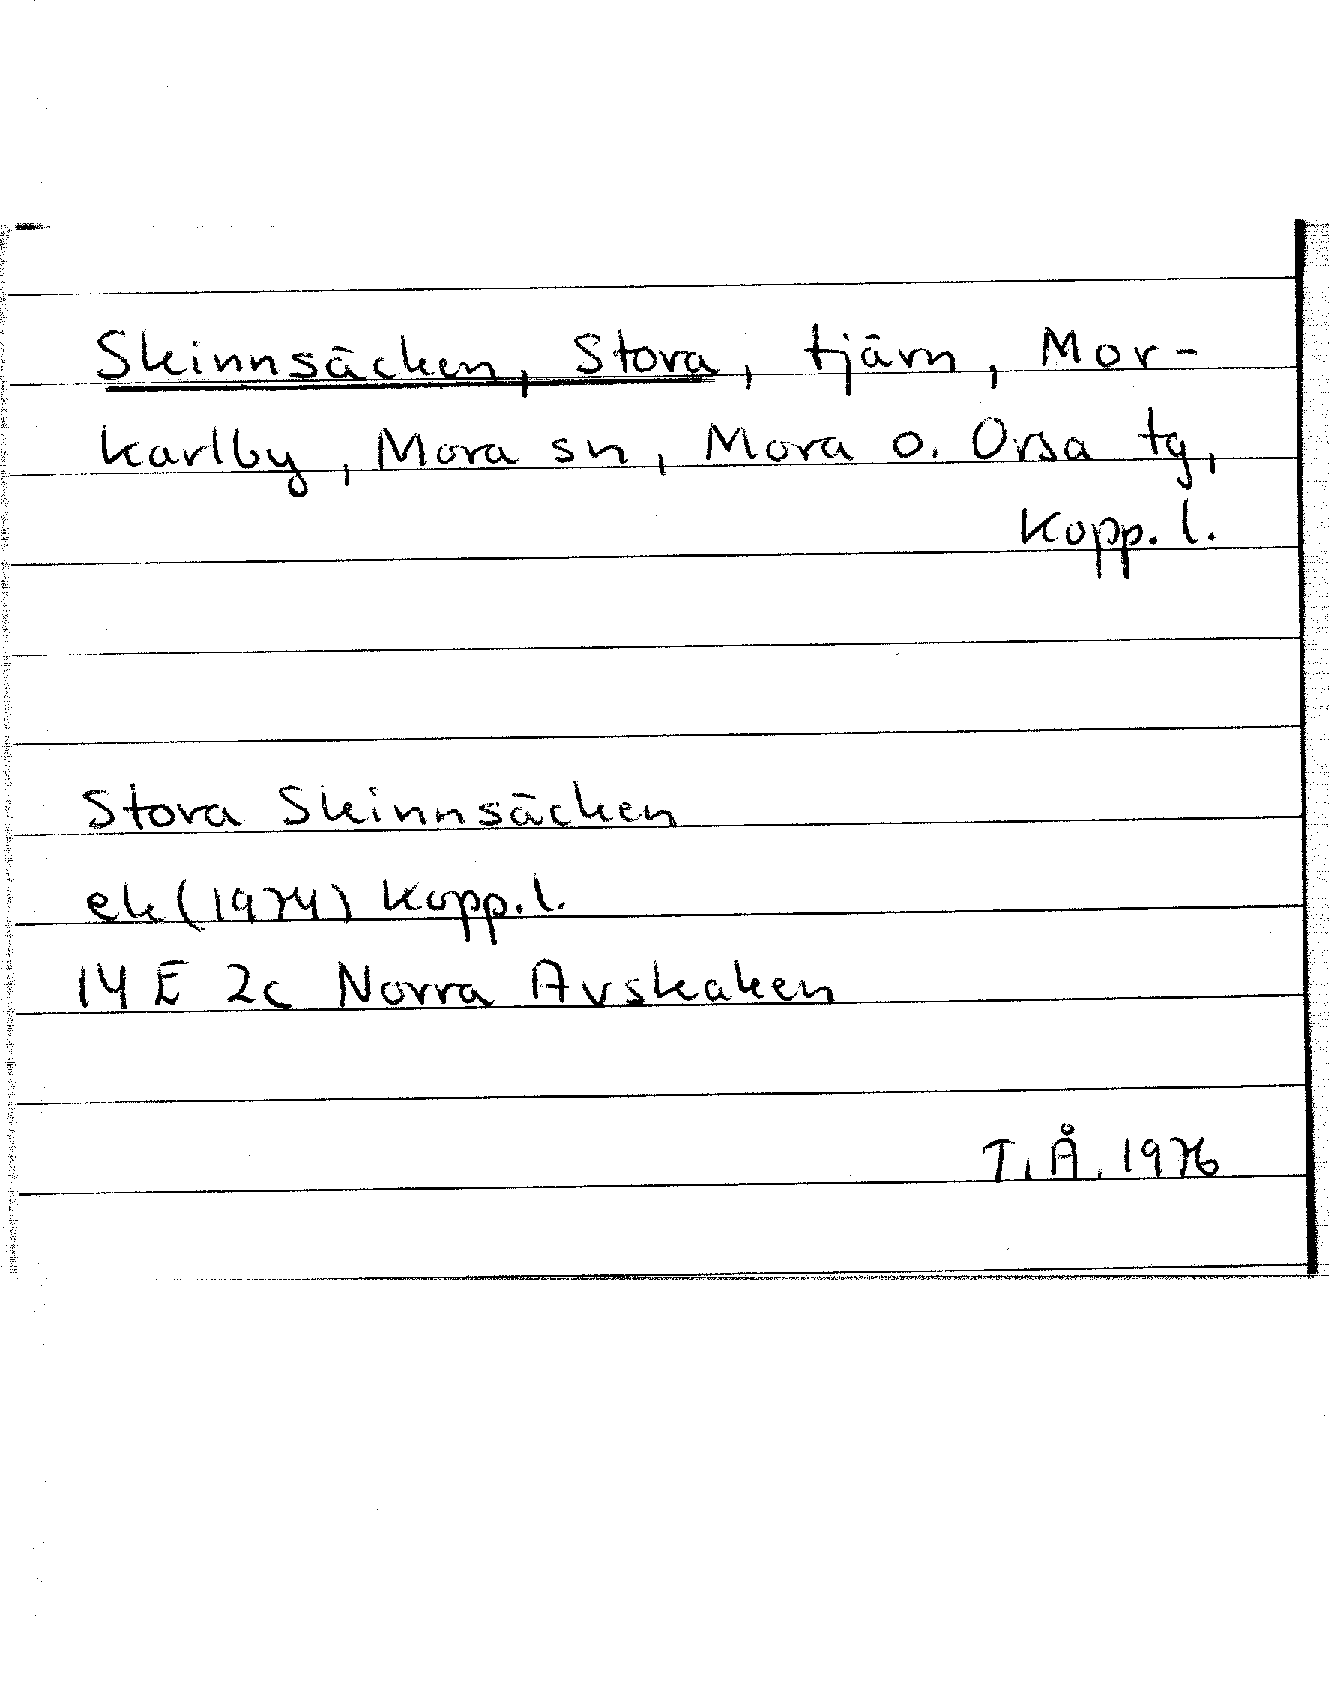 Skinnsäcken, Stora, tjärn, Mor-
karlby, Mora sn, Mora o. Orsa tg,
Kopp. l.
Stora Skinnsäcken
ek (1974) Kopp. l.
14 E 2c Norra Avskaken
T. Å. 1976